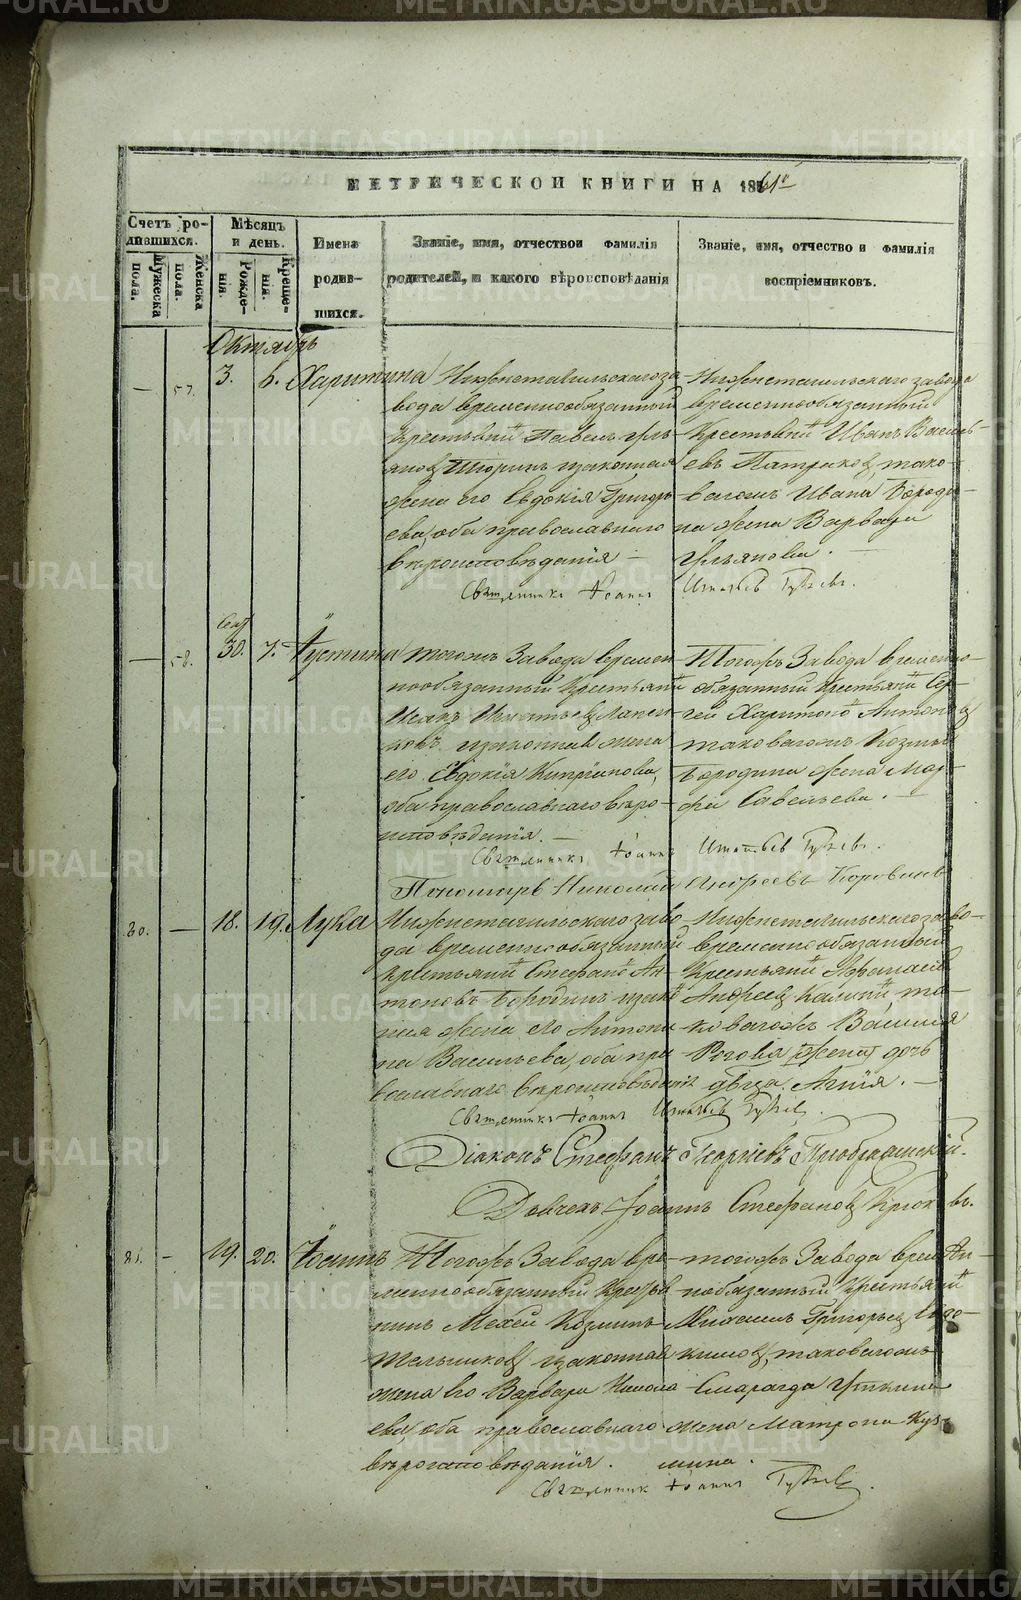 МЕТРИЧЕСКОЙ КНИГИ НА 1861й
Счетъ ро-
дившихся.
Мужеска
пола.
Женска
пола.
Мѣсяцъ
и день.
Рожде-
нія.
Креще-
нія.
Имена
родив-
шихся.
Званіе, имя, отчество и фамилія
родителей, и какого вѣроисповѣданія
Званіе, имя, отчество и фамилія
воспріемниковъ.
Октябрь
— 57. 3. 6. Харитина
Нижнетагильскаго за
вода временнообязанный
Крестьянинъ Павелъ Улья-
новъ законная
жена его Евдокія Григорь
ева, оба православнаго
вѣроисповѣданія —
Нижнетагильскаго завода
временнообязанный
Крестьянинъ Иванъ Василь-
евъ тако-
вагожъ Ивана Бороди-
на жена Варвара
Ульянова. —
Священникъ Іоаннъ Игнатьевъ
— 58. Сент 30. 7. Іустина
тогожъ Завода времен
нообязанный Крестьянинъ
Исакъ Игнатьевъ
законная жена
его Евдокія Кипріянова,
оба православнаго вѣро-
исповѣданія. —
Тогожъ Завода временно-
обязанный Крестьянинъ Сер-
гей Харитоновъ
таковагожъ Козмы
Бородина жена Мар-
фа Савельева. —
Священникъ Іоаннъ Игнатьевъ
Пономарь Николай Андреевъ Коровинъ
80. — 18. 19. Лука
Нижнетагильскаго заво
да временнообязанный
Крестьянинъ Стефанъ Ан-
тоновъ Бородинъ закон
ная жена его Антони
на Васильева, оба пра
вославнаго вѣроисповѣданія
Нижнетагильскаго заво-
временнообязанный
Крестьянинъ Афанасій
Андреевъ та-
ковагожъ Василія
Рогова жена дочь
двца Анна. —
Священникъ Іоаннъ Игнатьевъ
Діаконъ Стефанъ Георгіевъ Преображенскій.
Дьячекъ Іоаннъ Стефановъ Крюковъ.
81. - 19. 20. Іоаннъ
Тогожъ Завода вре-
меннообязанный Кресья
нинъ Мокей Козминъ
законная
жена его Варвара Никола
ева, оба православнаго
вѣроисповѣданія.
тогожъ Завода времен-
нообязанный Крестьянинъ
Михаилъ Григорьевъ
таковагожъ
Смарагда Уткина
жена Матрона Куз-
мина.
Священникъ Іоаннъ
METRIKI.GASO-URAL.RU